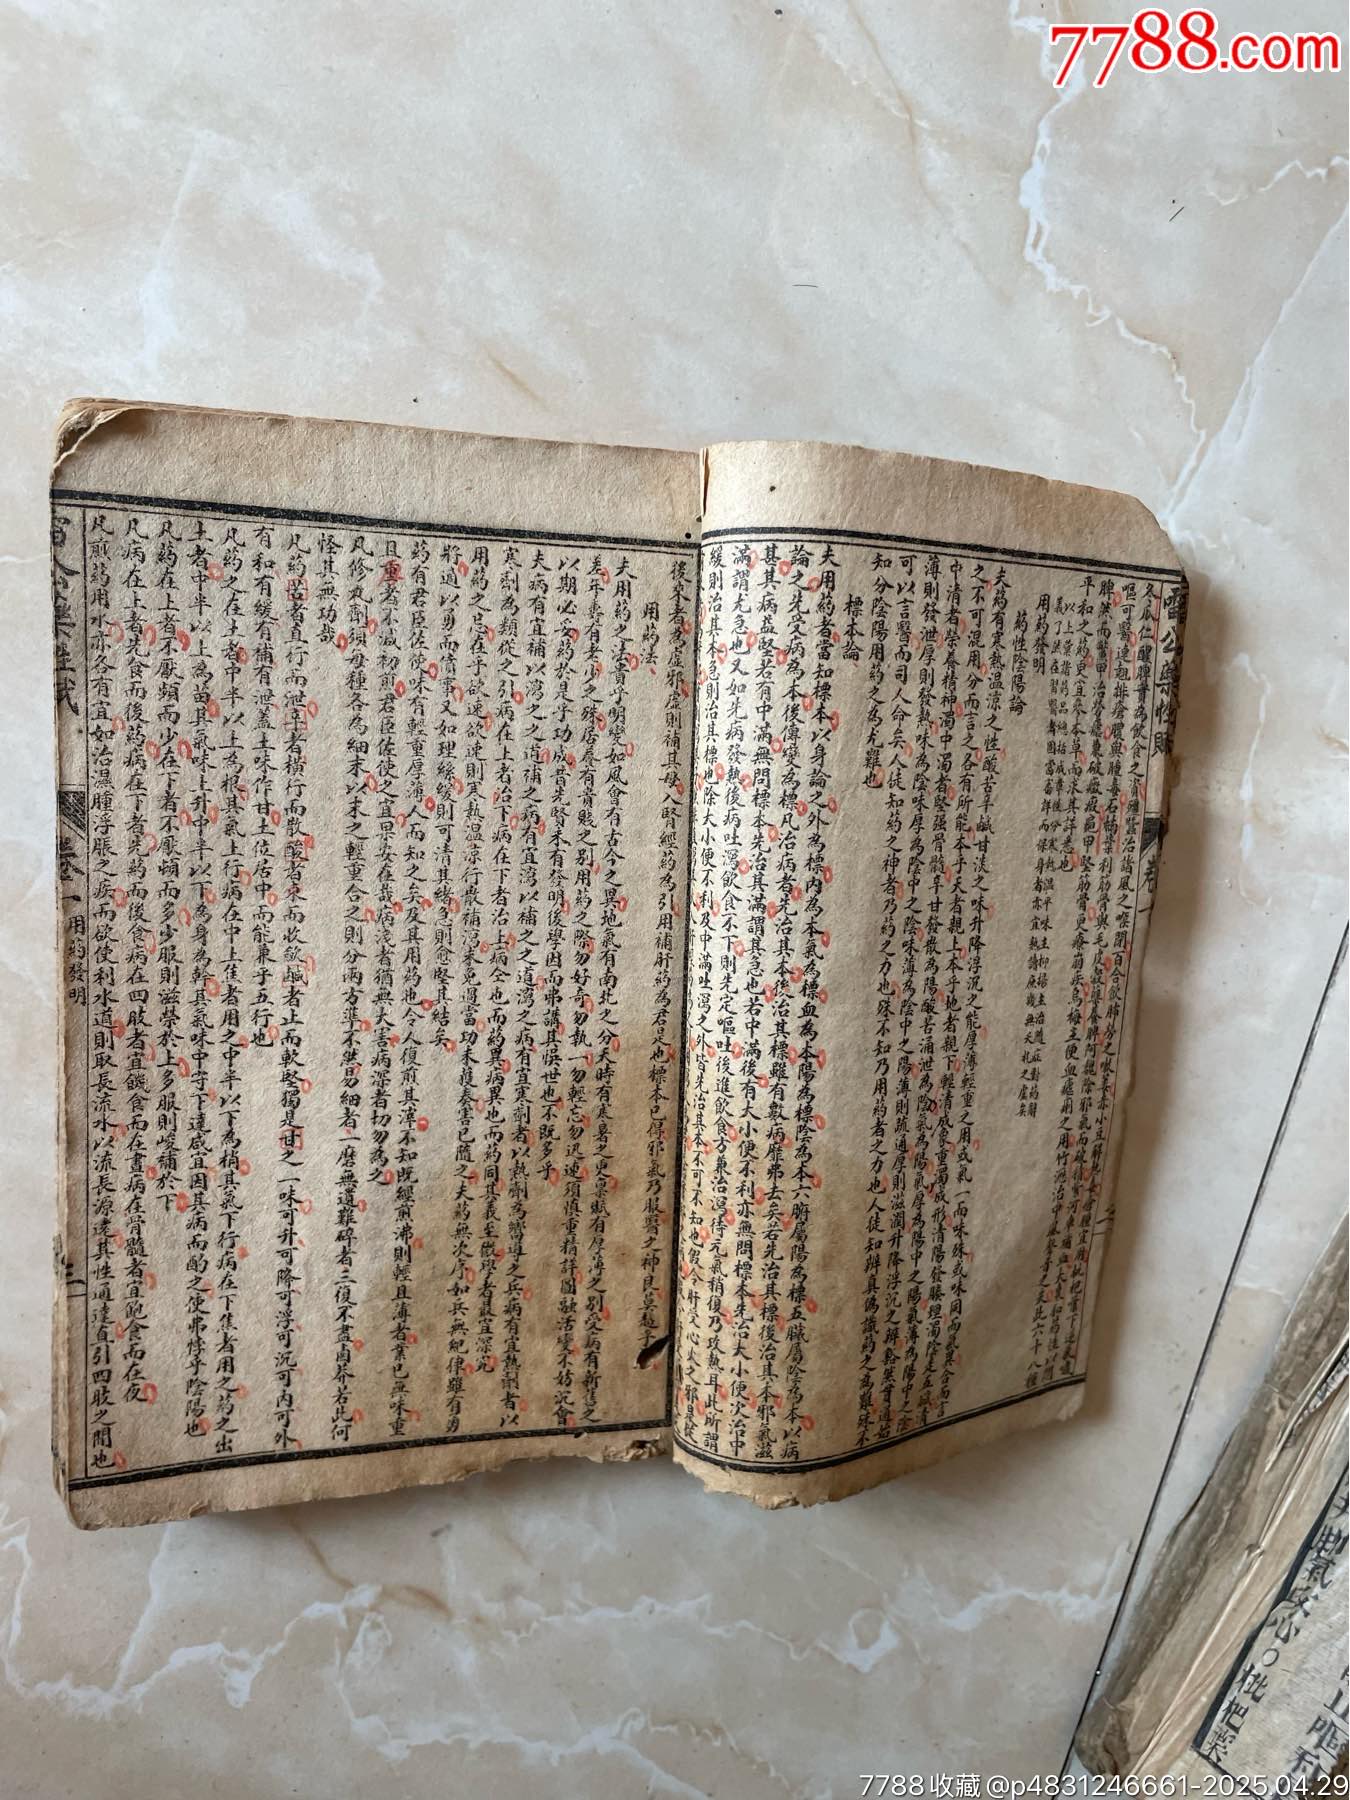 7788.com
雷公藥性賦
卷一
用藥發明
藥性陰陽論
夫药有寒熱温凉之性酸苦辛鹹甘淡之味升降浮沉之能厚薄輕重之用或氣一而味殊或味同而氣異合而言
之不可混用分而言之各有所能本乎天者親上本乎地者親下輕清成象重濁成形清陽發腠理濁陰走五臟清
中清者榮養精神濁中濁者堅强骨髓辛甘發散為陽酸苦涌泄為陰氣為陽氣厚為陽中之陽氣薄為陽中之陰
薄則發泄厚則發熱味為陰味厚為陰中之陰味薄為陰中之陽薄則疏通厚則滋潤升降浮沉之辨豁然貫通始
可以言醫而司人命矣人徒知药之神者乃药之力也殊不知乃用药者之力也人徒知辨真偽識药之為難殊不
知分陰陽用药之為尤難也
標本論
夫用药者當知標本以身論之外為標內為本氣為標血為本陽為標陰為本六腑屬陽為標五臟屬陰為本以病
論之先受病為本後傳變為標凡治病者先治其本後治其標雖有數病靡弗去矣若先治其標後治其本邪氣滋
甚其病益堅若有中滿無問標本先治其滿謂其急也若中滿後有大小便不利亦無問標本先治大小便次治中
滿謂尤急也又如先病發熱後病吐瀉飲食不下則先定嘔吐後進飲食方兼治瀉待元氣稍復乃攻熱耳此所謂
緩則治其本急則治其標也除大小便不利及中滿吐瀉之外皆先治其本不可不知也假令肝受心火之邪是從
後來者為虛邪虛則補其母入腎經药為引用補肝药為君是也標本已得邪氣乃服醫之神良莫越乎
用药法
夫用药之法貴乎明變如風會有古今之異地氣有南北之分天時有寒暑之更稟賦有厚薄之别受病有新舊之
差年壽有老少之殊居養有貴賤之别用药之際勿好奇勿執一勿輕忘勿迅速須慎重精詳圓融活變不妨沉會
以期必妥药於是乎功成昔先賢未有發明後學因而弗講其悞世也不既多乎
夫病有宜補以瀉之之道補之病有宜瀉以補之之道瀉之病有宜寒劑者以熱劑為嚮導之兵病有宜熱劑者以
寒劑為類從之引病在上者治下病在下者治上病仝也而药異病異也而药同其義至微學者最宜深究
用药之忌在乎欲速欲速則寒熱温凉行散補瀉未免過當功未獲奏害已隨之夫药無次序如兵無紀律雖有勇
將適以勇而僨事又如理絲緩則可清其緒急則愈堅其結矣
药有君臣佐使味有輕重厚薄人而知之矣及其用药也令人復煎其滓不知既經煎沸則輕且薄者業已無味重
且重者不减初前君臣佐使之宜果安在哉病淺者猶無大害病深者切勿為之
凡修丸劑須每種各為細末以末之輕重合之則分兩方準不然易細者一磨無遺難碎者三復不盡鹵莽若此何
怪其無功哉
凡药苦者直行而泄辛者横行而散酸者束而收歛鹹者止而軟堅獨是甘之一味可升可降可浮可沉可內可外
有和有緩有補有泄蓋土味作甘土位居中而能兼乎五行也
凡药之在土者中半以上為根其氣上行病在中上焦者用之中半以下為梢其氣下行病在下焦者用之药之出
土者中半以上為苗其氣味上升中半以下為身為幹其氣味中守下達咸宜因其病而酌之使弗悖乎陰陽也
凡药在上者不厭頻而少在下者不厭頓而多少服則滋榮於上多服則峻補於下
凡病在上者先食而後药病在下者先药而後食病在四肢者宜饑食而在晝病在骨髓者宜飽食而在夜
凡煎药用水亦各有宜如治濕腫浮脹之疾而欲使利水道則取長流水以流長源遠其性通達直引四肢之間也
雷公藥性賦
卷一
用药發明
三
枇杷葉
7788收藏@p4831246661-2025.04.29